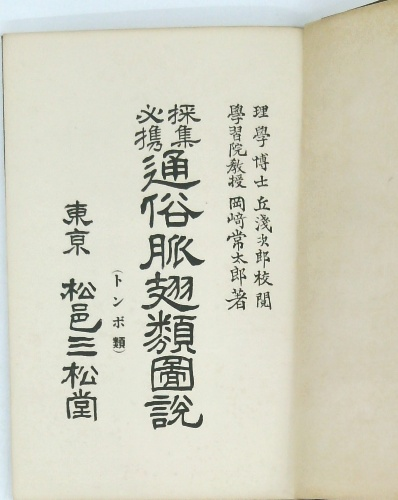 理學博士 丘淺次郎校閲
學習院教授 岡﨑常太郎著
採集
必携
通俗脈翅類圖説
(トンボ類)
東京 松邑三松堂